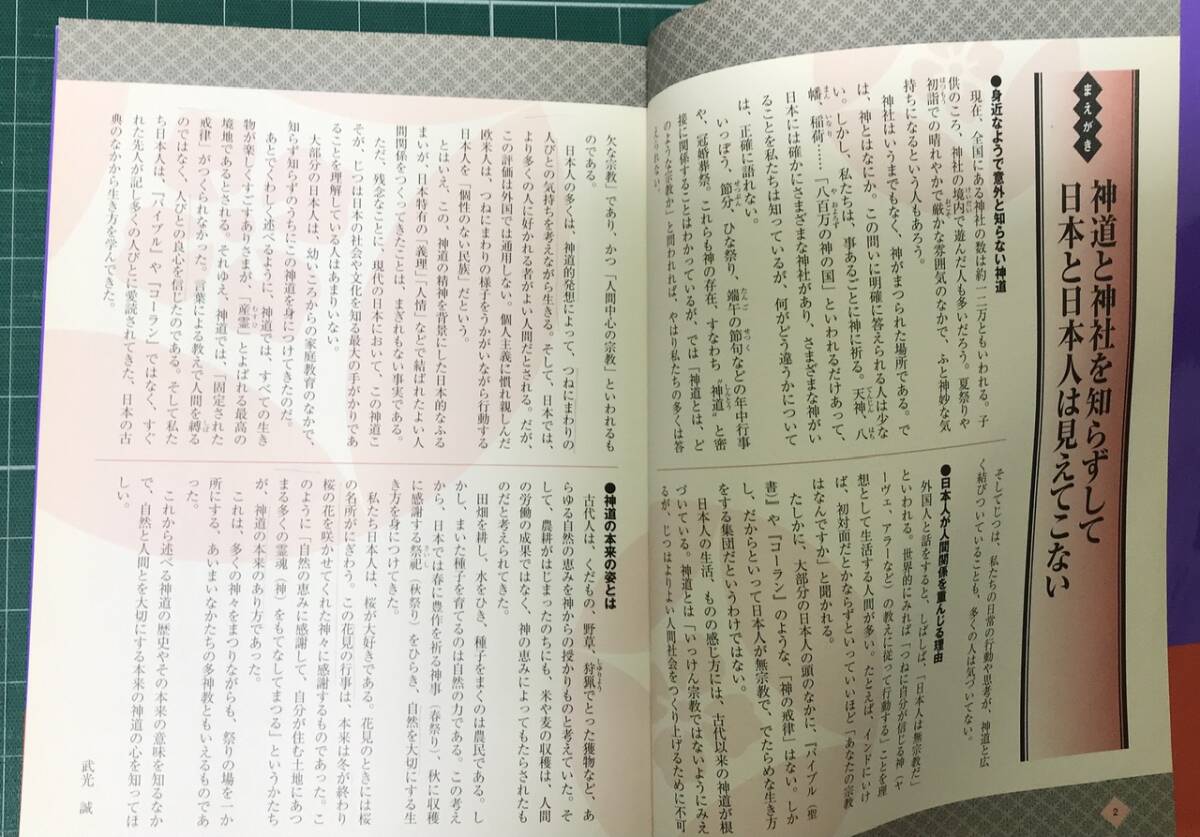 まえがき
神道と神社を知らずして
日本と日本人は見えてこない
●身近なようで意外と知らない神道
現在、全国にある神社の数は約一二万ともいわれる。子
供のころ、神社の境内で遊んだ人も多いだろう。夏祭りや
初詣での晴れやかで厳かな雰囲気のなかで、ふと神妙な気
持ちになるという人もあろう。
神社はいうまでもなく、神がまつられた場所である。で
は、神とはなにか。この問いに明確に答えられる人は少な
い。しかし、私たちは、事あるごとに神に祈る。天神、八
幡、稲荷……「八百万の神の国」といわれるだけあって、
日本には確かにさまざまな神社があり、さまざまな神がい
ることを私たちは知っているが、何がどう違うかについて
は、正確に語れない。
いっぽう、節分、ひな祭り、端午の節句などの年中行事
や、冠婚葬祭。これらも神の存在、すなわち〝神道〟と密
接に関係することはわかっているが、では「神道とは、ど
のような宗教か」と問われれば、やはり私たちの多くは答
えられない。
そしてじつは、私たちの日常の行動や思考が、神道と広
く結びついていることも、多くの人は気づいてない。
●日本人が人間関係を重んじる理由
外国人と話をすると、しばしば、「日本人は無宗教だ」
といわれる。世界的にみれば「つねに自分が信じる神（ヤ
ーヴェ、アラーなど）の教えに従って行動する」ことを理
想として生活する人間が多い。たとえば、インドにいけ
ば、初対面だとかならずといっていいほど「あなたの宗教
はなんですか」と聞かれる。
たしかに、大部分の日本人の頭のなかに、『バイブル（聖
書）』や『コーラン』のような、「神の戒律」はない。しか
し、だからといって日本人が無宗教で、でたらめな生き方
をする集団だというわけではない。
日本人の生活、もの の感じ方には、古代以来の神道が根
づいている。神道とは「いっけん宗教ではないようにみえ
るが、じつはよりよい人間社会をつくり上げるために不可
2
欠な宗教」であり、かつ「人間中心の宗教」といわれるも
のである。
日本人の多くは、神道的発想によって、つねにまわりの
人びとの気持ちを考えながら生きる。そして、日本では、
より多くの人に好かれる者がよい人間だとされる。だが、
この評価は外国では通用しない。個人主義に慣れ親しんだ
欧米人は、つねにまわりの様子をうかがいながら行動する
日本人を「個性のない民族」だという。
とはいえ、この、神道の精神を背景にした日本的なふる
まいが、日本特有の「義理」「人情」などで結ばれたよい人
間関係をつくってきたことは、まぎれもない事実である。
ただ、残念なことに、現代の日本において、この神道こ
そが、じつは日本の社会や文化を知る最大の手がかりであ
ることを理解している人はあまりいない。
大部分の日本人は、幼いころからの家庭教育のなかで、
知らず知らずのうちにこの神道を身につけてきたのだ。
あとでくわしく述べるように、神道では、すべての生き
物が楽しくすごすありさまが、「産霊」とよばれる最高の
境地であるとされる。それゆえ、神道では、「固定された
戒律」がつくられなかった。言葉による教えで人間を縛る
のではなく、人びとの良心を信じたのである。そして私た
ち日本人は、『バイブル』や『コーラン』ではなく、すぐ
れた先人が記し多くの人びとに愛読されてきた、日本の古
典のなかから生き方を学んできた。
●神道の本来の姿とは
古代人は、くだもの、野草、狩猟でとった獲物など、あ
らゆる自然の恵みを神からの授かりものと考えていた。そ
して、農耕がはじまったのちにも、米や麦の収穫は、人間
の労働の成果ではなく、神の恵みによってもたらされたも
のだと考えられてきた。
田畑を耕し、水をひき、種子をまくのは農民である。し
かし、まいた種子を育てるのは自然の力である。この考え
から、日本では春に豊作を祈る神事（春祭り）、秋に収穫
に感謝する祭祀（秋祭り）をひらき、自然を大切にする生
き方を身につけてきた。
私たち日本人は、桜が大好きである。花見のときには桜
の名所がにぎわう。この花見の行事は、本来は冬が終わり
桜の花を咲かせてくれた神々に感謝するものであった。こ
のように「自然の恵みに感謝して、自分が住む土地にあつ
まる多くの霊魂（神）をもてなしてまつる」というかたち
が、神道の本来のあり方であった。
これは、多くの神々をまつりながらも、祭りの場を一か
所にする、あいまいなかたちの多神教ともいえるものであ
った。
これから述べる神道の歴史やその本来の意味を知るなか
で、自然と人間とを大切にする本来の神道の心を知ってほ
しい。
武光　誠